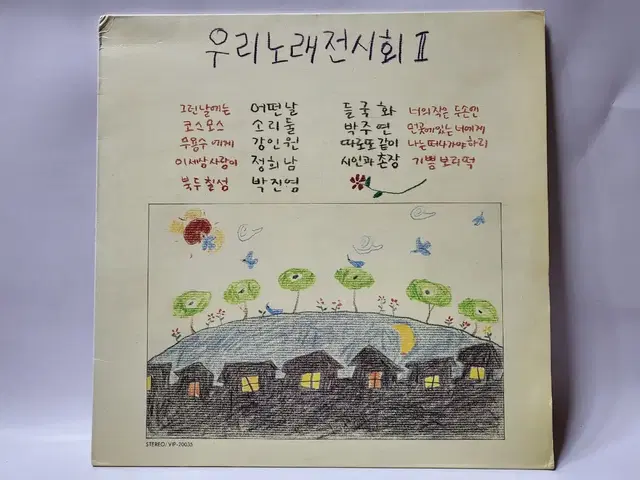 우리노래전시회 II
그런날에는 어떤날 들국화 너의작은 두손엔
코스모스 소리둘 박주연 먼곳에있는너에게
무용수에게 강인원 따로또같이 나는떠나가야하리
이세상사람이 정희남 시인과 촌장 기쁨보리떡
북두칠성 박진영
STEREO/VIP-20035